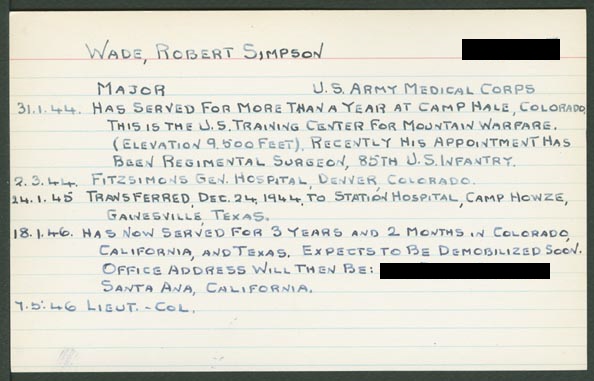 WADE, ROBERT SIMPSON
MAJOR U.S. ARMY MEDICAL CORPS
31.1.44. HAS SERVED FOR MORE THAN A YEAR AT CAMP HALE, COLORADO.
THIS IS THE U.S. TRAINING CENTER FOR MOUNTAIN WARFARE.
(ELEVATION 9,500 FEET). RECENTLY HIS APPOINTMENT HAS
BEEN REGIMENTAL SURGEON, 85TH U.S. INFANTRY.
2.3.44. FITZSIMONS GEN. HOSPITAL, DENVER, COLORADO.
24.1.45 TRANSFERRED, DEC. 24, 1944, TO STATION HOSPITAL, CAMP HOWZE,
GAINESVILLE, TEXAS.
18.1.46. HAS NOW SERVED FOR 3 YEARS AND 2 MONTHS IN COLORADO,
CALIFORNIA, AND TEXAS. EXPECTS TO BE DEMOBILIZED SOON.
OFFICE ADDRESS WILL THEN BE:
SANTA ANA, CALIFORNIA.
7.5.46 LIEUT.-COL.